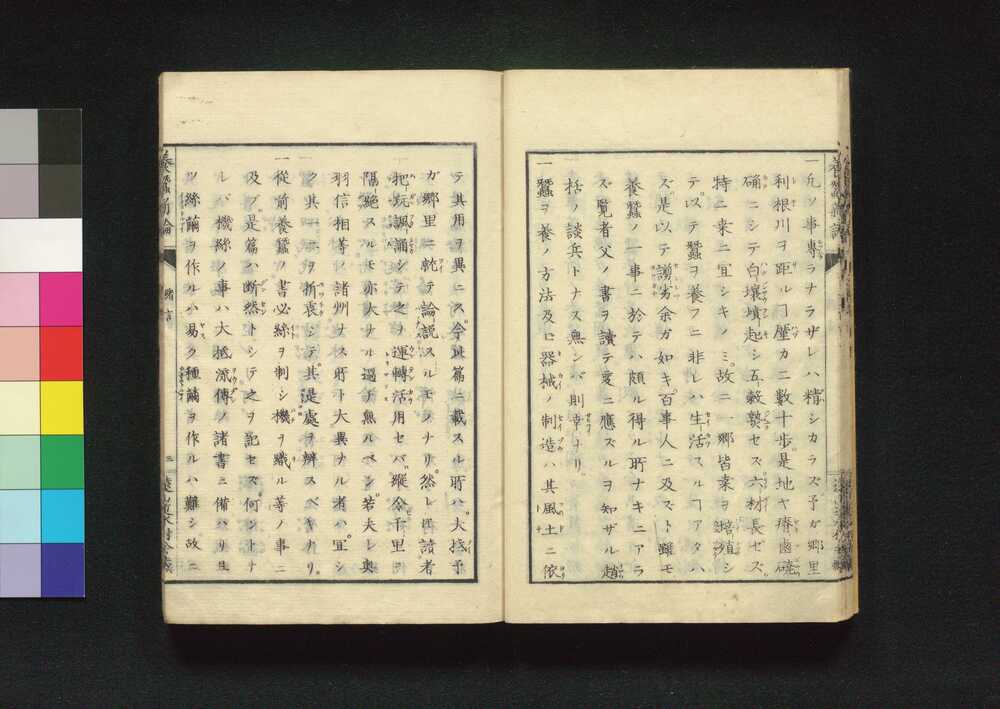 一凡ソ事専ラナラザレハ精シカラズ予ガ郷里
利根川ヲ距ルヿ厪カニ數十歩是地ヤ瘠鹵磽
确ニシテ白壤墳起シ五穀熟セス六材長セズ
特ニ桒ニ宜シキノミ故ニ一郷皆桒ヲ培殖シ
テ以テ蠶ヲ養フニ非レハ生活スルヿアタハ
ズ是以テ謭劣余ガ如キ百事人ニ及ズト雖モ
養蠶ノ一事ニ於テハ頗ル得ル所ナキニアラ
ズ覧者父ノ書ヲ讀テ変ニ應スルヲ知ザル趙
括ノ談兵トナス無ンバ則幸ナリ
一蠶ヲ養ノ方法及ヒ器械ノ制造ハ其風土ニ依
テ其用ヲ異ニス今此篇ニ載スル所ハ大抵予
ガ郷里ニ就テ論説スルモノナリ然レ𪜈讀者
把玩諷誦シテ之ヲ運轉活用セバ縱令千里ヲ
隔絶スルモ亦大ナル過チ無ルベシ若夫レ奥
羽信相等ノ諸州ナス所ト大異ナル者ハ宜シ
ク其一二ヲ折衷シテ其是處ヲ辨スベキナリ
一從前養蠶ノ書必絲ヲ制シ機ヲ織ル等ノ事ニ
及ブ是篇ハ断然トシテ之ヲ記セズ何ントナ
レバ機絲ノ事ハ大抵流傳ノ諸書ニ備ハリ且
ツ絲繭ヲ作ルハ易ク種繭ヲ作ルハ難シ故ニ
緒言
三